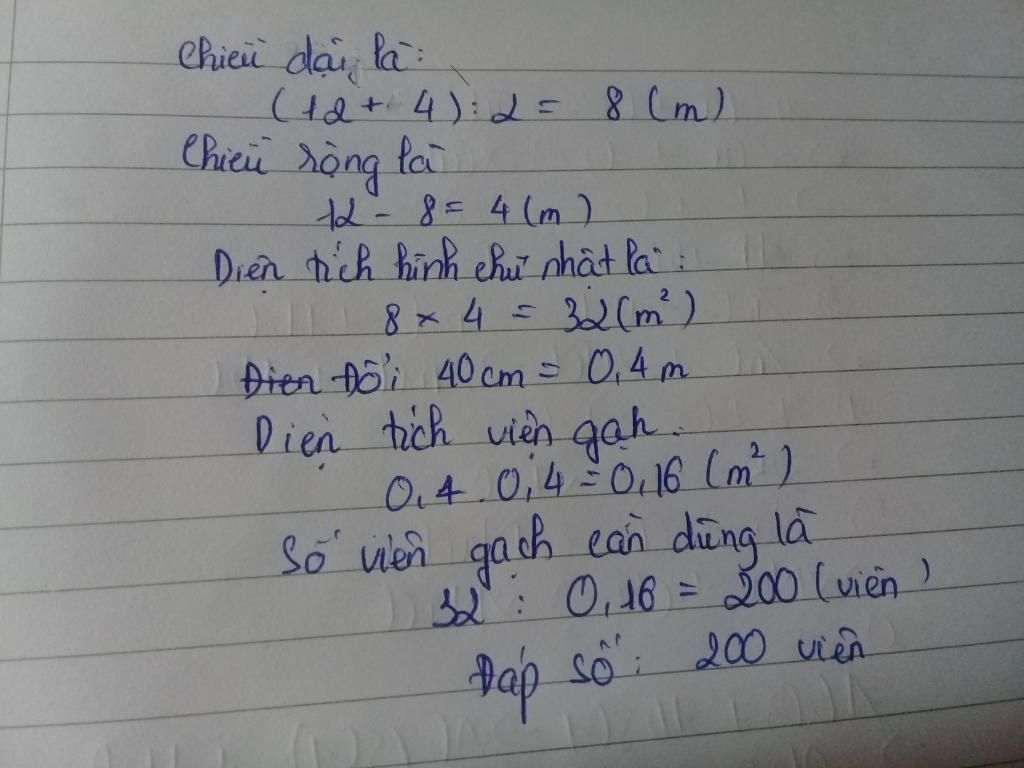 Chiều dài là:
(12 + 4) : 2 = 8 (m)
Chiều rộng là
12 - 8 = 4 (m)
Diện tích hình chữ nhật là :
8 × 4 = 32 (m²)
Đien Đổi 40 cm = 0,4 m
Diện tích viên gạh.
0,4 . 0,4 = 0,16 (m²)
Số viên gạch cần dùng là
32 : 0,16 = 200 (viên)
Đáp số : 200 viên